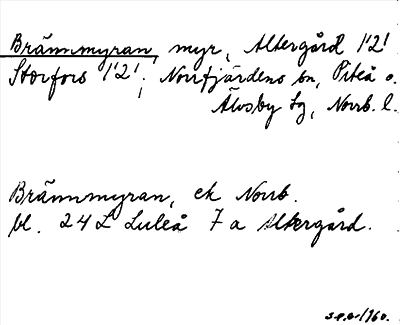 Brännmyran, myr, Altergård 1'2!
Storfors 1'2!; Norrfjärdens sn, Piteå o.
Älvsby tg, Norrb. l.
Brännmyran, ek Norrb.
bl. 24 L Luleå 7 a Altergård.
1960.